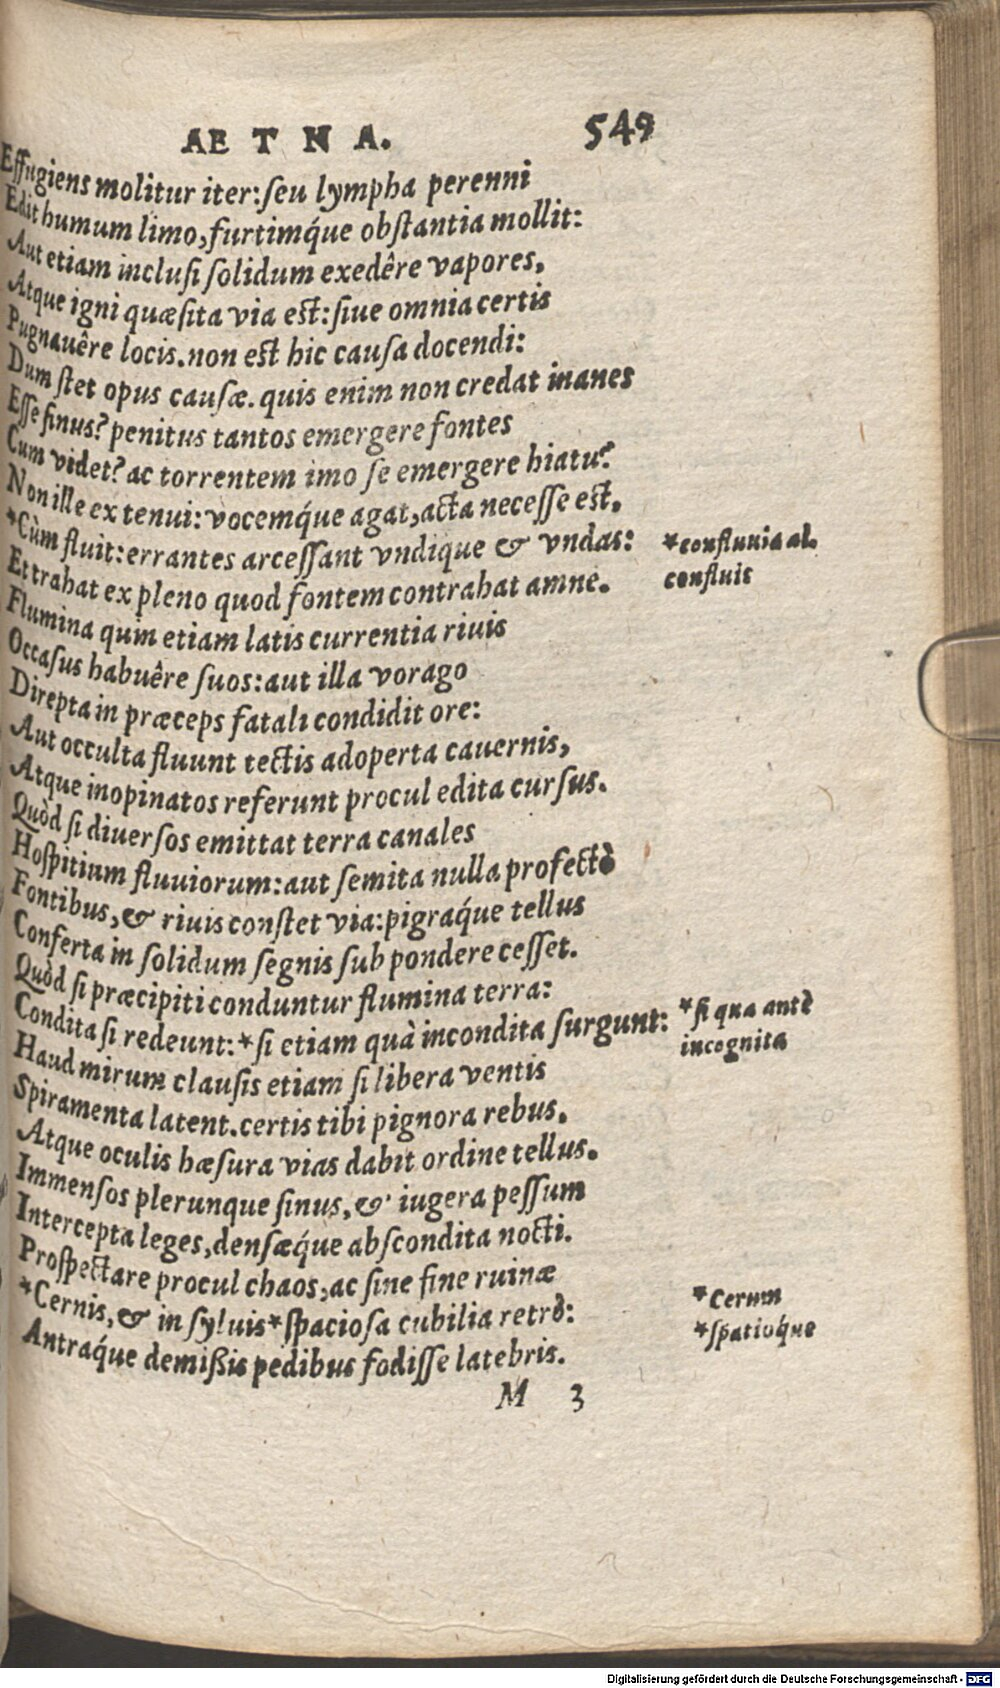 AETNA. 549
Effugiens molitur iter: ſeu lympha perenni
Edit humum limo, furtimq́ue obſtantia mollit:
Aut etiam incluſi ſolidum exedêre vapores,
Atque igni quæſita via eſt: ſiue omnia certis
Pugnauêre locis. non eſt hic cauſa docendi:
Dum ſtet opus cauſæ. quis enim non credat inanes
Eſſe ſinus? penitus tantos emergere fontes
Cum videt? ac torrentem imo ſe emergere hiatu?
Non ille ex tenui: vocemq́ue agat, acta neceſſe eſt,
*Cùm fluit: errantes arceſſant vndique & vndas: *confluuia al.
Et trahat ex pleno quod fontem contrahat amne. confluit
Flumina quin etiam latis currentia riuis
Occaſus habuêre ſuos: aut illa vorago
Direpta in præceps fatali condidit ore:
Aut occulta fluunt tectis adoperta cauernis,
Atque inopinatos referunt procul edita curſus.
Quòd ſi diuerſos emittat terra canales
Hoſpitium fluuiorum: aut ſemita nulla profectò
Fontibus, & riuis conſtet via: pigraq́ue tellus
Conferta in ſolidum ſegnis ſub pondere ceſſet.
Quòd ſi præcipiti conduntur flumina terra:
Condita ſi redeunt: *ſi etiam quà incondita ſurgunt: *ſi qua antè
Haud mirum clauſis etiam ſi libera ventis incognita
Spiramenta latent. certis tibi pignora rebus.
Atque oculis hæſura vias dabit ordine tellus.
Immenſos plerunque ſinus, & iugera peſſum
Intercepta leges, denſæq́ue abſcondita nocti.
Proſpectare procul chaos, ac ſine fine ruinæ
*Cernis, & in ſyluis *ſpacioſa cubilia retrò: *Cerum
Antraq́ue demiſßis pedibus fodiſſe latebris. *ſpatioq́ue
M 3
Digitalisierung gefördert durch die Deutsche Forschungsgemeinschaft - DFG